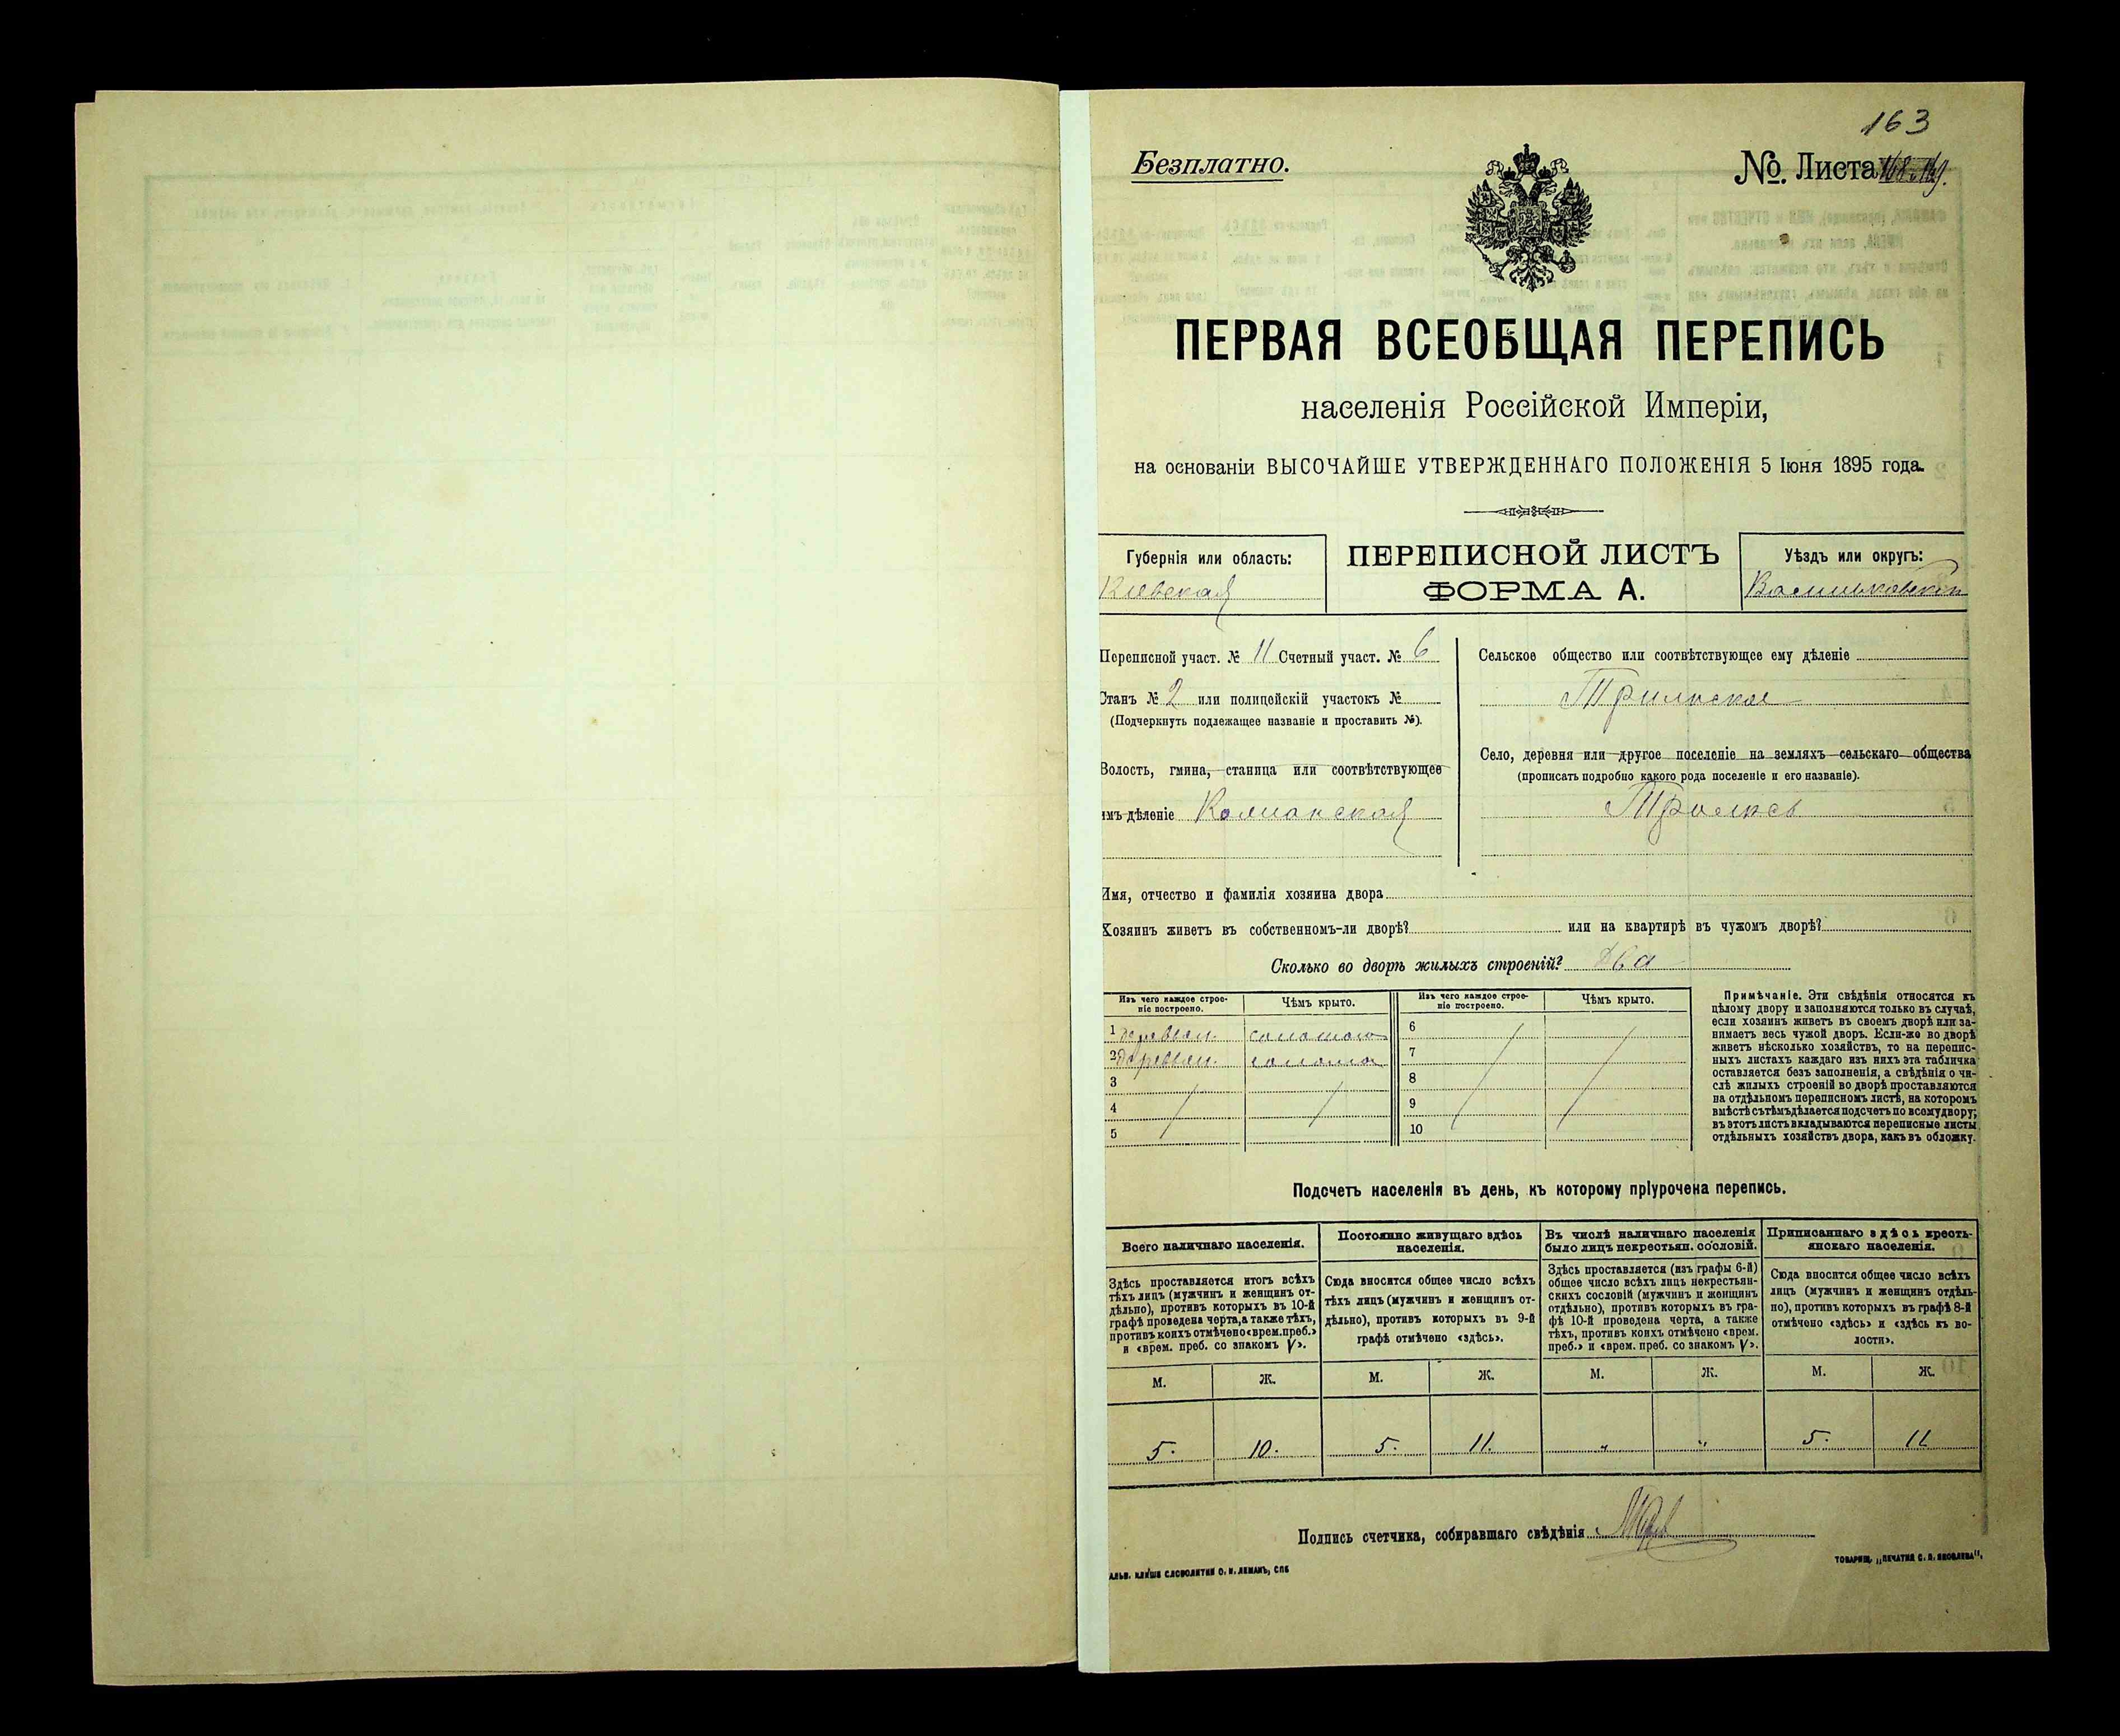 163
Безплатно.
№ Листа
ПЕРВАЯ ВСЕОБЩАЯ ПЕРЕПИСЬ
населенія Россійской Имперіи,
на основаніи ВЫСОЧАЙШЕ УТВЕРЖДЕННАГО ПОЛОЖЕНІЯ 5 Іюня 1895 года.
Губернія или область:
Кіевская
ПЕРЕПИСНОЙ ЛИСТЪ
ФОРМА А.
Уѣздъ или округъ:
Васильковскій
Переписной участ. № 11 Счетный участ. № 6
Станъ № 2 или полицейскій участокъ №
(Подчеркнуть подлежащее названіе и проставить №).
Волость, гмина, станица или соотвѣтствующее
имъ дѣленіе
Сельское общество или соотвѣтствующее ему дѣленіе
Трилиское
Село, деревня или другое поселеніе на земляхъ сельскаго общества
(прописать подробно какого рода поселеніе и его названіе).
Имя, отчество и фамилія хозяина двора
Хозяинъ живетъ въ собственномъ-ли дворѣ? или на квартирѣ въ чужомъ дворѣ?
Сколько во дворѣ жилыхъ строеній? два
Изъ чего каждое строе-
ніе построено.
Чѣмъ крыто.
1 деревян. соломою
2 деревян. солома
3
4
5
Изъ чего каждое строе-
ніе построено.
Чѣмъ крыто.
6
7
8
9
10
Примѣчаніе. Эти свѣдѣнія относятся къ
цѣлому двору и заполняются только въ случаѣ,
если хозяинъ живетъ въ своемъ дворѣ или за-
нимаетъ весь чужой дворъ. Если-же во дворѣ
живетъ нѣсколько хозяйствъ, то на перепис-
ныхъ листахъ каждаго изъ нихъ эта табличка
оставляется безъ заполненія, а свѣдѣнія о чи-
слѣ жилыхъ строеній во дворѣ проставляются
на отдѣльномъ переписномъ листѣ, на которомъ
вмѣстѣ съ тѣмъ дѣлается подсчетъ по всему двору;
въ этотъ листъ вкладываются переписные листы
отдѣльныхъ хозяйствъ двора, какъ въ обложку.
Подсчетъ населенія въ день, къ которому пріурочена перепись.
Всего наличнаго населенія.
Здѣсь проставляется итогъ всѣхъ
тѣхъ лицъ (мужчинъ и женщинъ от-
дѣльно), противъ которыхъ въ 10-й
графѣ проведена черта, а также тѣхъ,
противъ коихъ отмѣчено «врем. преб.»
и «врем. преб. со знакомъ V».
Постоянно живущаго здѣсь
населенія.
Сюда вносится общее число всѣхъ
тѣхъ лицъ (мужчинъ и женщинъ от-
дѣльно), противъ которыхъ въ 9-й
графѣ отмѣчено «здѣсь».
Въ числѣ наличнаго населенія
было лицъ некрестьян. сословій.
Здѣсь проставляется (изъ графы 6-й)
общее число всѣхъ лицъ некрестьян-
скихъ сословій (мужчинъ и женщинъ
отдѣльно), противъ которыхъ въ гра-
фѣ 10-й проведена черта, а также
тѣхъ, противъ коихъ отмѣчено «врем.
преб.» и «врем. преб. со знакомъ V».
Приписаннаго здѣсь кресть-
янскаго населенія.
Сюда вносится общее число всѣхъ
лицъ (мужчинъ и женщинъ отдѣль-
но), противъ которыхъ въ графѣ 8-й
отмѣчено «здѣсь» и «здѣсь къ во-
лости».
М. Ж. М. Ж. М. Ж. М. Ж.
5. 10. 5. 11. " " 5. 11
Подпись счетчика, собиравшаго свѣдѣнія
ТОВАРИЩ. „ПЕЧАТНЯ С. П. ЯКОВЛЕВА“.